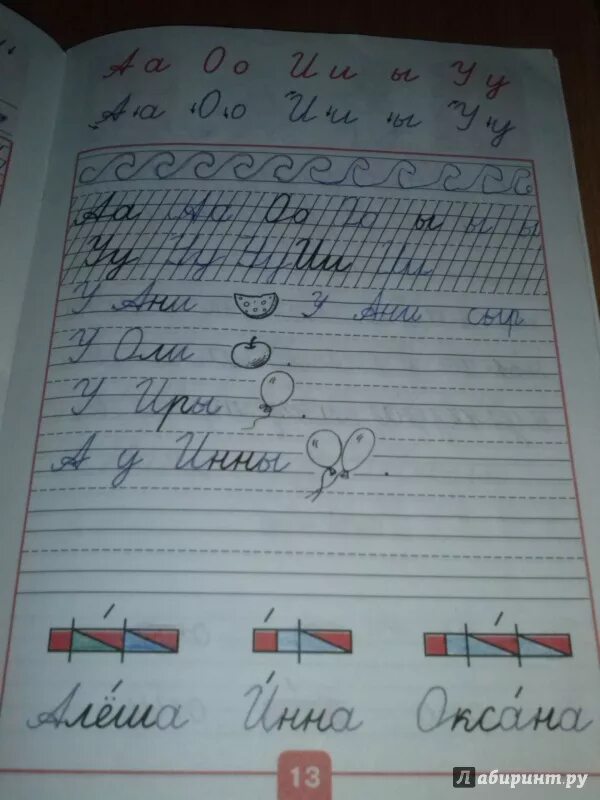 Аа Оо Ии ы Уу
Аа Оо Ии ы Уу
Аа Аа Оо Оо ы ы ы
Уу Уу Уу Ии Ии
У Ани У Ани сыр
У Оли .
У Иры .
А у Инны .
Алёша И́нна Окса́на
13
Лабиринт.ру